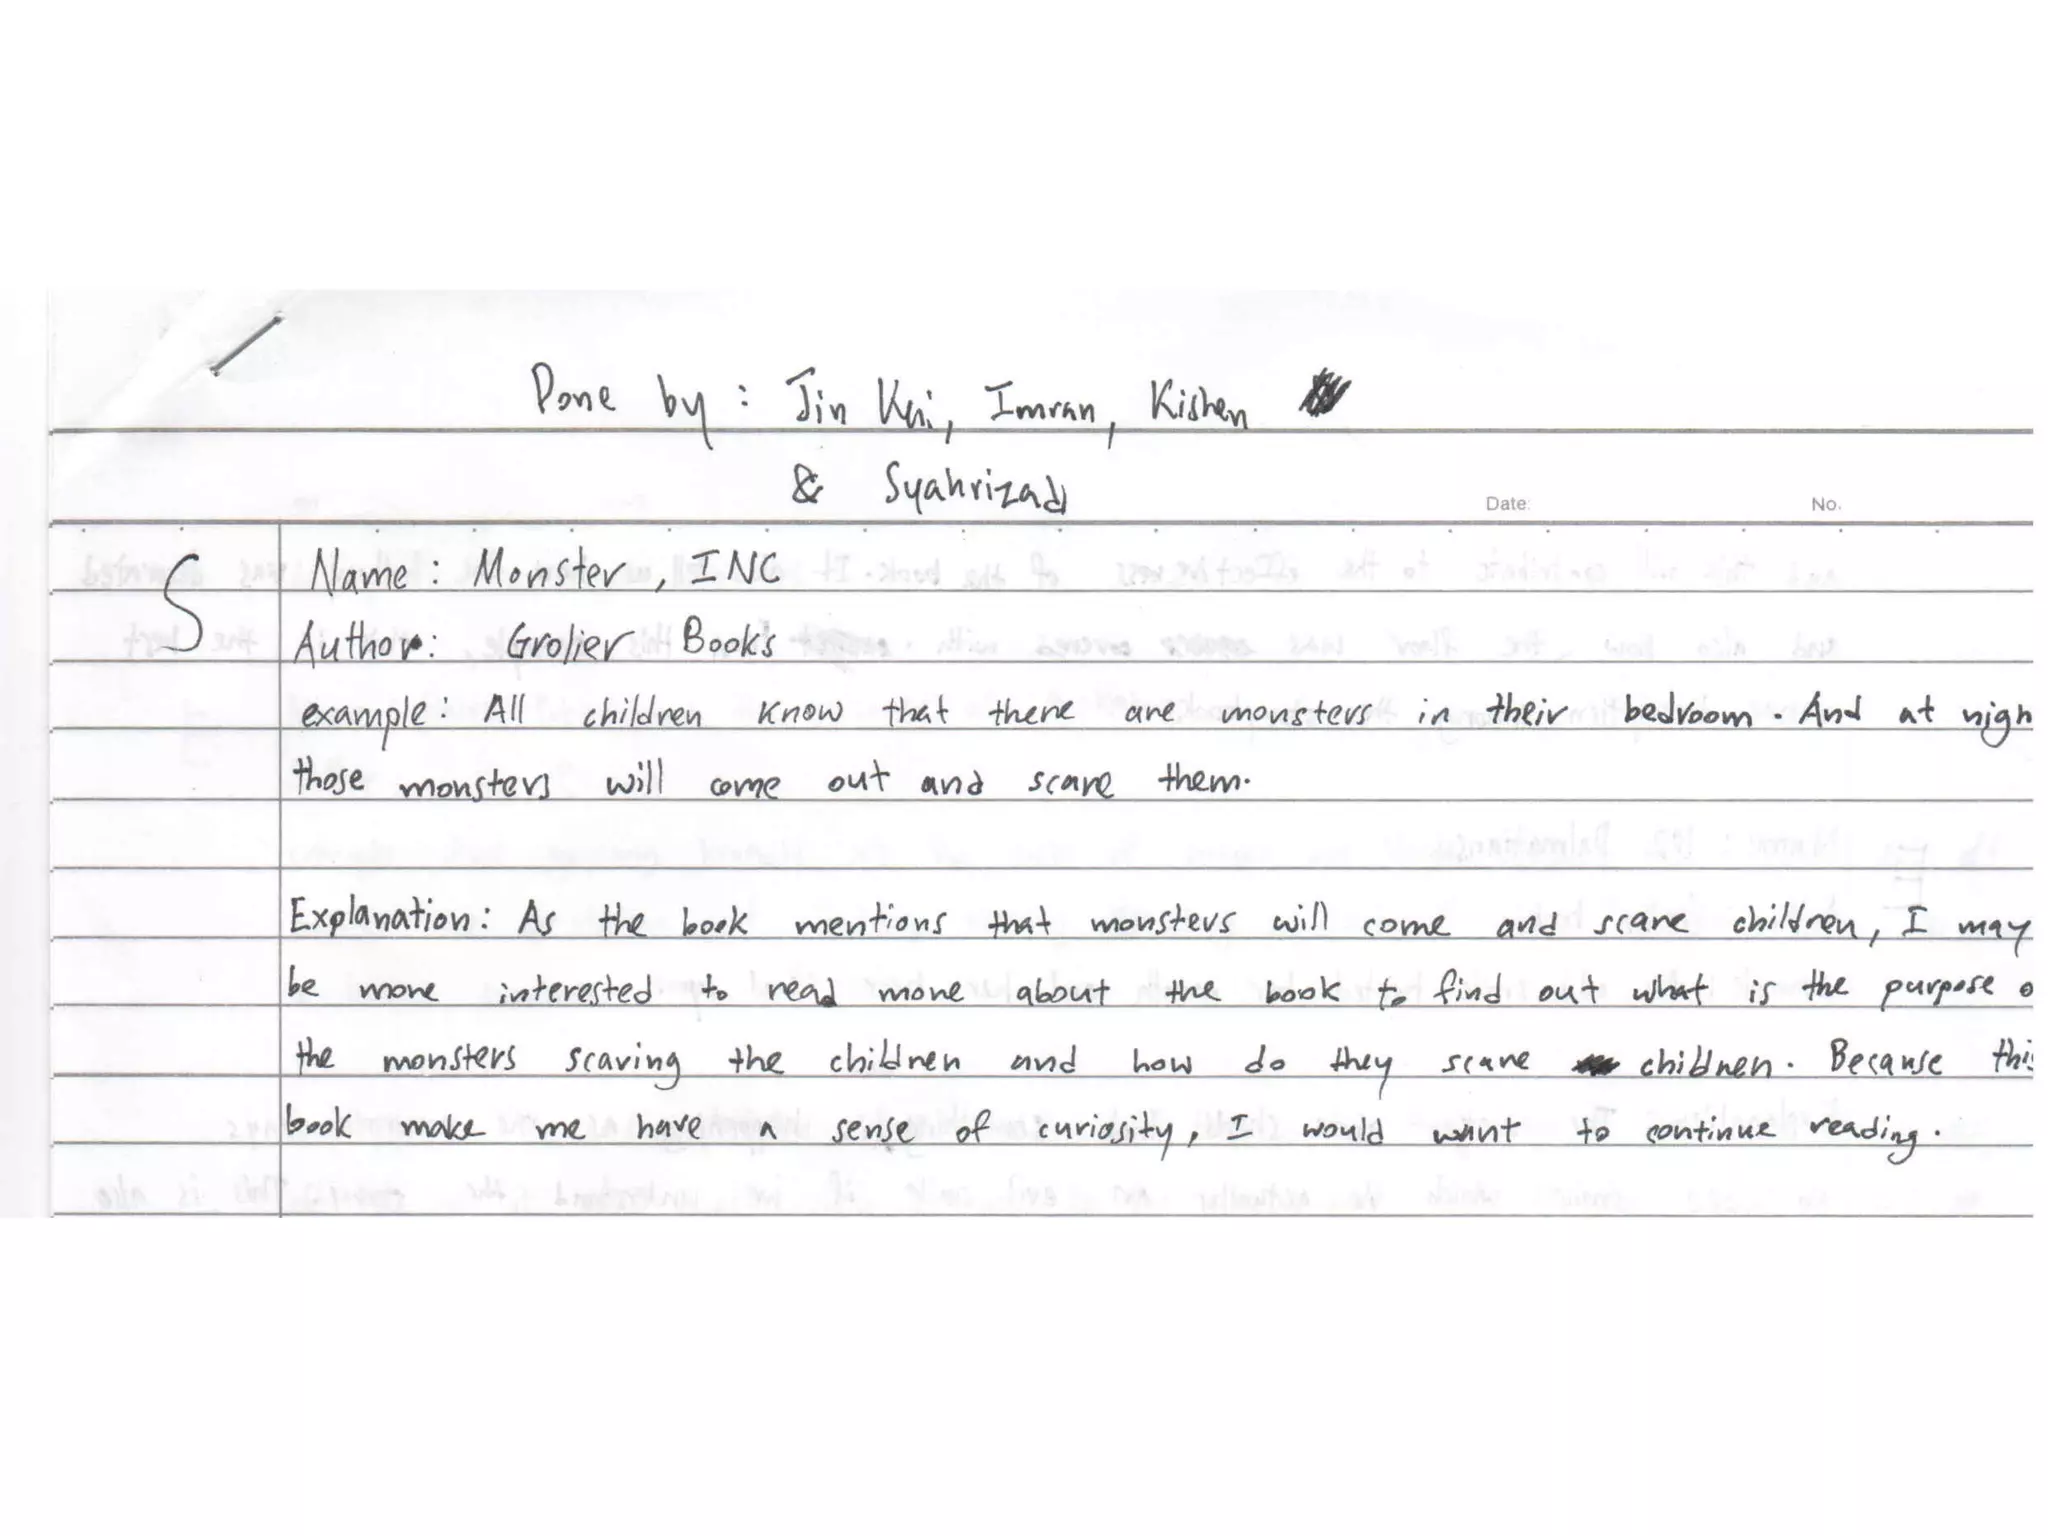 Done by: Jin Kai, Imran, Kishen
& Syahrizad
Date: No.
S Name: Monster, INC
Author: Grolier Books
example: All children know that there are monsters in their bedroom. And at nigh
those monsters will come out and scare them.
Explanation: As the book mentions that monsters will come and scare children, I may
be more interested to read more about the book to find out what is the purpose o
the monsters scaring the children and how do they scare children. Because this
book make me have a sense of curiosity, I would want to continue reading.